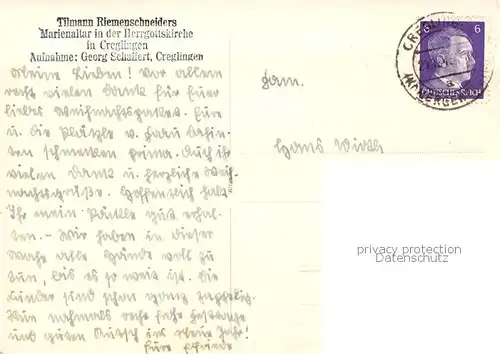 Tilmann Riemenschneiders
Marienaltar in der Herrgottskirche
in Creglingen
Aufnahme: Georg Schaffert, Creglingen
Meine Lieben! Vor allem
recht vielen Dank für Euer
liebes Weihnachtspaket. Eure
u. die Päckle v. Frau
schmecken prima. Auch Ihr
vielen Dank u. herzliche Weih-
nachtsgrüße. Hoffentlich habt
Ihr mein Päckle gut erhal-
ten. - Wir haben in dieser
Woche alle Hände voll zu
tun, bis es so weit ist. Die
Kinder sind schon ganz zappelig.
Nun nochmals recht frohe Festtage
und guten Rutsch ins Neue Jahr!
Eure Elfriede
Fam.
Hans Wirth
CREGLINGEN
6
DEUTSCHES REICH
(MERGENTHEIM)
privacy protection
AKPOOL.DE